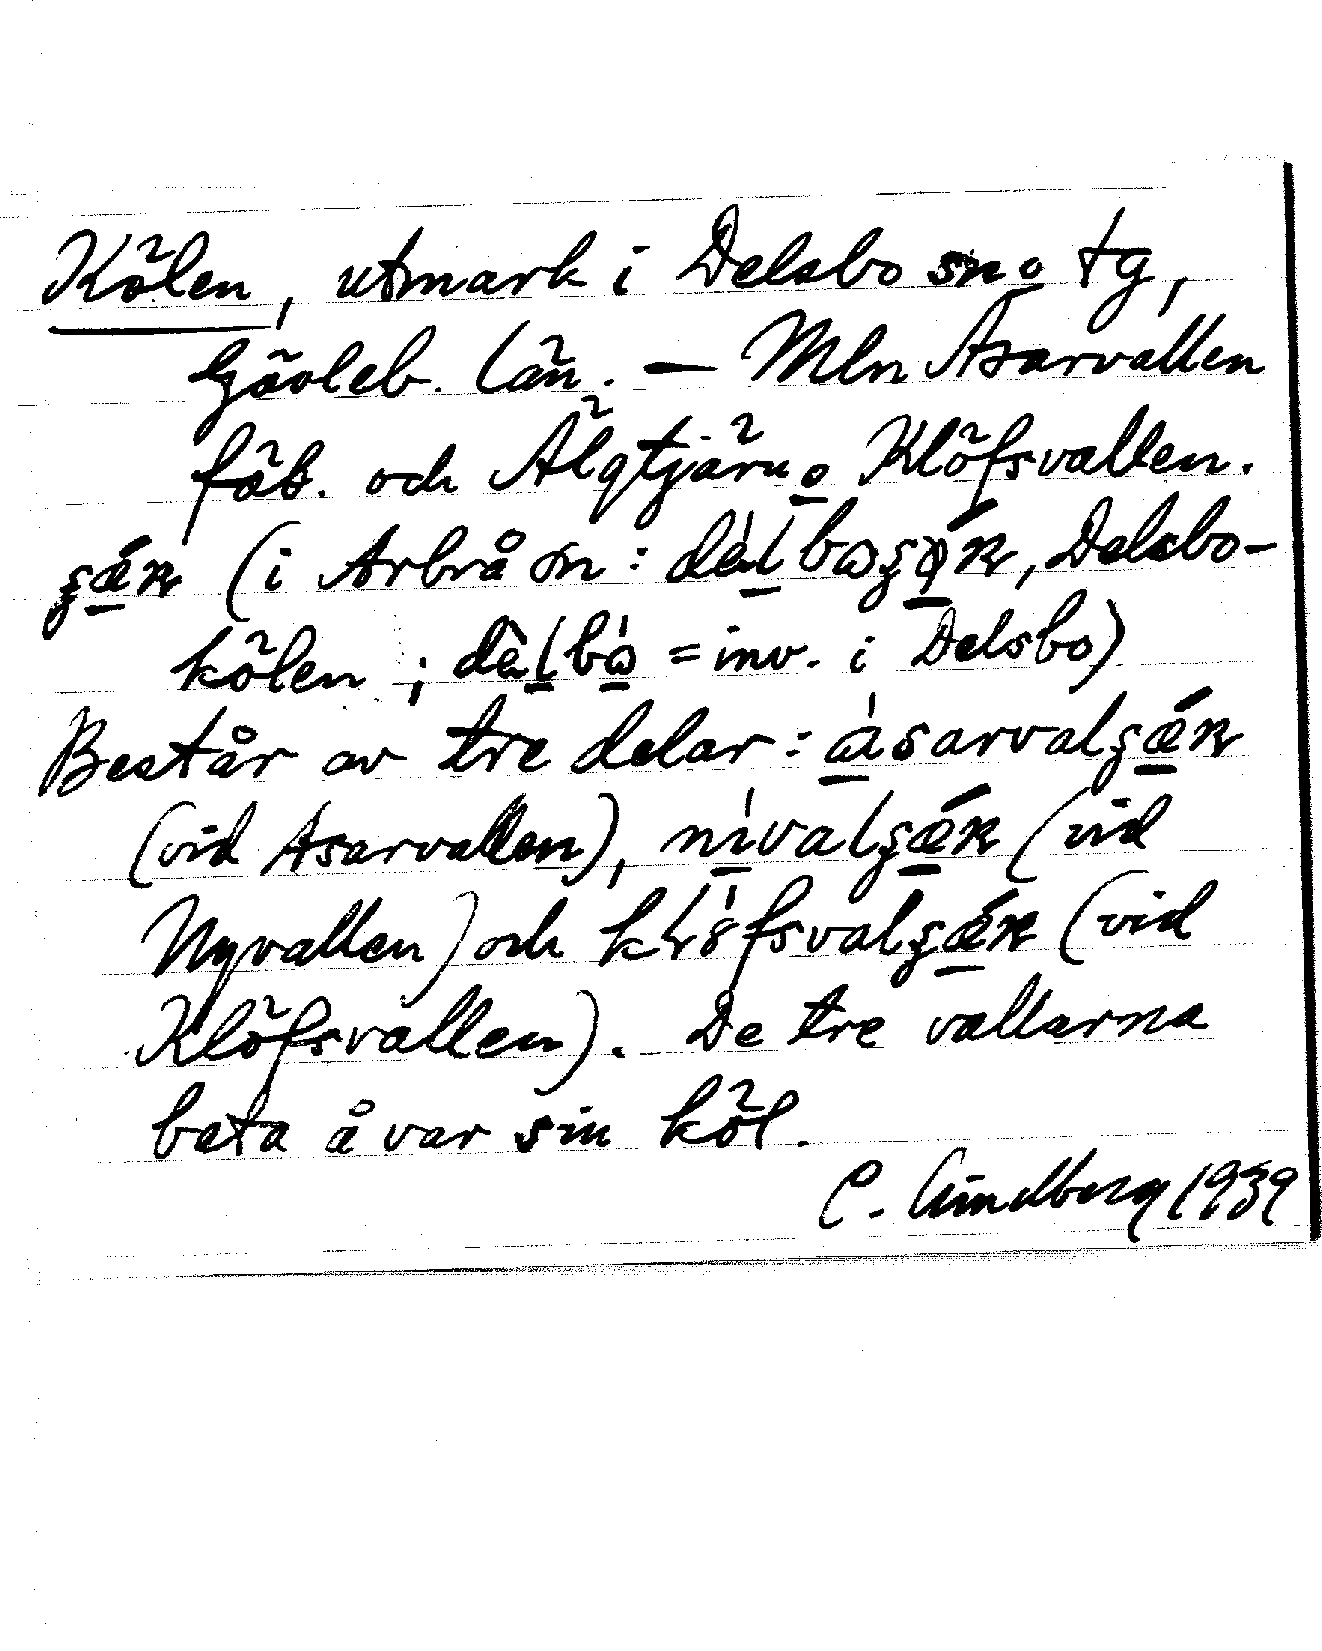 Kölen, utmark i Delsbo sn o tg,
Gävleb. län. — Mln Åsarvallen
fäb. och Älgtjärn o Klöfsvallen.
(i Arbrå sn: Delsbo-
kölen; = inv. i Delsbo)
Består av tre delar:
(vid Åsarvallen), (vid
Nyvallen) och (vid
Klöfsvallen). De tre vallarna
beta å var sin köl.
C. Lundberg 1939